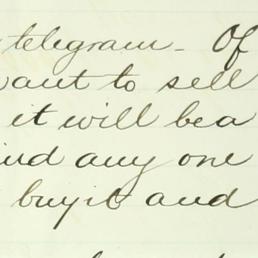 telegram - Of
want to sell
it will be a
find any one
buy it and